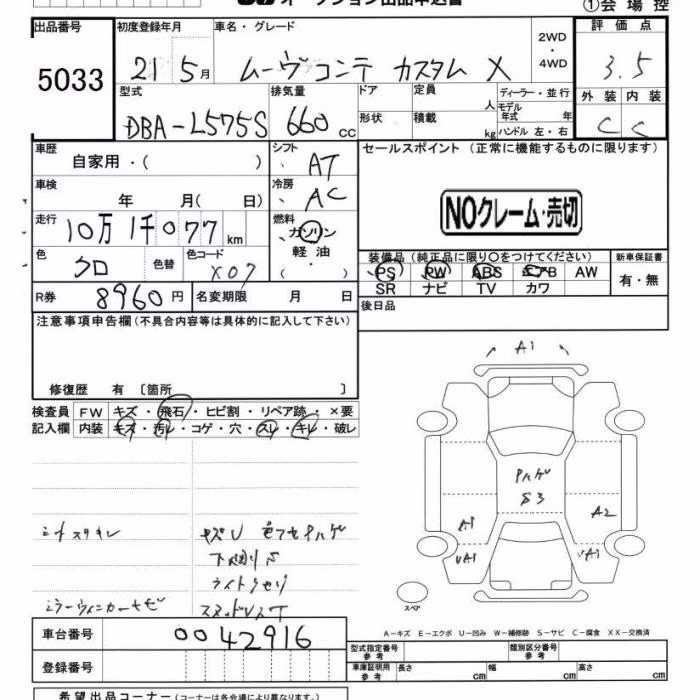 出品番号
5033
初度登録年月
21 5月
車名・グレード
ムーヴコンテ カスタム X
2WD
・
4WD
①会場控
評価点
3.5
外装 内装
C C
型式
DBA-L575S
排気量
660 cc
ドア
形状
定員
人
積載
kg
ディーラー・並行
モデル
年式 年
ハンドル 左・右
車歴
自家用・( )
シフト
AT
車検
年 月( 日)
冷房
AC
走行
10万1千077 km
燃料
ガソリン
軽油
・( )
色
クロ
色替
色コード
X07
R券
8960円
名変期限
月 日
セールスポイント (正常に機能するものに限ります)
NOクレーム・売切
装備品 (純正品に限り○をつけてください)
新車保証書
PS PW ABS エアB AW
SR ナビ TV カワ
有・無
後日品
注意事項申告欄(不具合内容等は具体的に記入して下さい)
修復歴 有 〔箇所 〕
検査員
記入欄
FW キズ・飛石・ヒビ割・リペア跡・×要
内装 キズ・汚レ・コゲ・穴・スレ・キレ・破レ
A1
Pハゲ
S3
A1
A2
UA1
UA1
シートスリキレ
キズU
下廻りS
ライトクモリ
スペア
A-キズ E-エクボ U-凹み W-補修跡 S-サビ C-腐食 XX-交換済
車台番号
0042916
登録番号
型式指定番号
参考
類別区分番号
参考
車庫証明用
参考
長さ cm
幅 cm
高さ cm
希望出品コーナー(コーナーは各会場により異なります。)